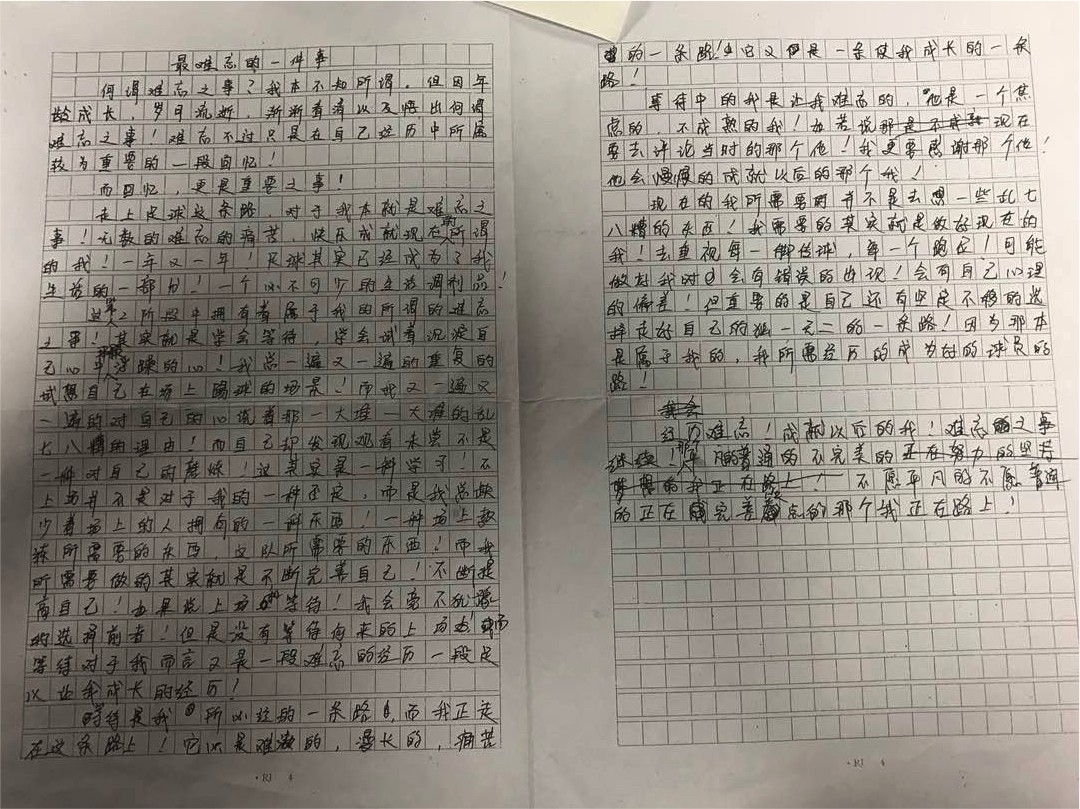 最难忘的一件事
何谓难忘之事？我本不知所谓。但因年
龄成长，岁月流逝，渐渐看清以及悟出何谓
难忘之事！难忘不过只是在自己经历中所属
较为重要的一段回忆！
而回忆，更是重要之事！
走上足球这条路，对于我本就是难忘之
事！无数的难忘的痛苦，快乐成就现在的所谓
的我！一年又一年！足球其实已经成为了我
生活的一部份！一个必不可少的生活调剂品！
这 之所以中拥有着属于我的所谓的难忘
之事！其实就是学会等待，学会试着沉淀自
己心中浮躁的心！我总一遍又一遍的重复的
试想自己在场上踢球的场景！而我又一遍又
一遍的对自己的心说着那一大堆一大堆的乱
七八糟的理由！而自己却发现观看未尝不是
一种对自己的磨炼！这其实是一种学习！不
上场并不是对于我的一种否定，而是我总缺
少着场上的人拥有的一种东西！一种场上教
练所需要的东西，球队所需要的东西！而我
所需要做的其实就是不断完善自己！不断提
高自己！如果说上场和等待！我会毫不犹豫
的选择前者！但是没有等待何来的上场！而
等待对于我而言又是一段难忘的经历一段足
以让我成长的经历！
等待是我所必经的一条路，而我正走
在这条路上！它必是难熬的，漫长的，痛苦
的一条路！它又但是一条使我成长的一条
路！
等待中的我是让我难忘的，他是一个焦
虑的，不成熟的我！如若说那是不成熟现在
要去评论当时的那个他！我更要感谢那个他！
他会慢慢的成就以后的那个我！
现在的我所需要的并不是去想一些乱七
八糟的东西！我需要的其实就是做好现在的
我！去重视每一脚传球，每一个跑位！可能
做出我对 会有错误的出现！会有自己心理
的偏差！但重要的是自己还有坚定不移的选
择走好自己的独一无二的一条路！因为那本
是属于我的，我所需经历的成为好的球员的
路！
我会
经历难忘！成就以后的我！难忘之事
继续！那个平凡的普通的不完美的正在努力的坚苦
的我正在路上！不愿平凡的不愿普通
的正在完善缺点的那个我正在路上！
RJ 4
RJ 4